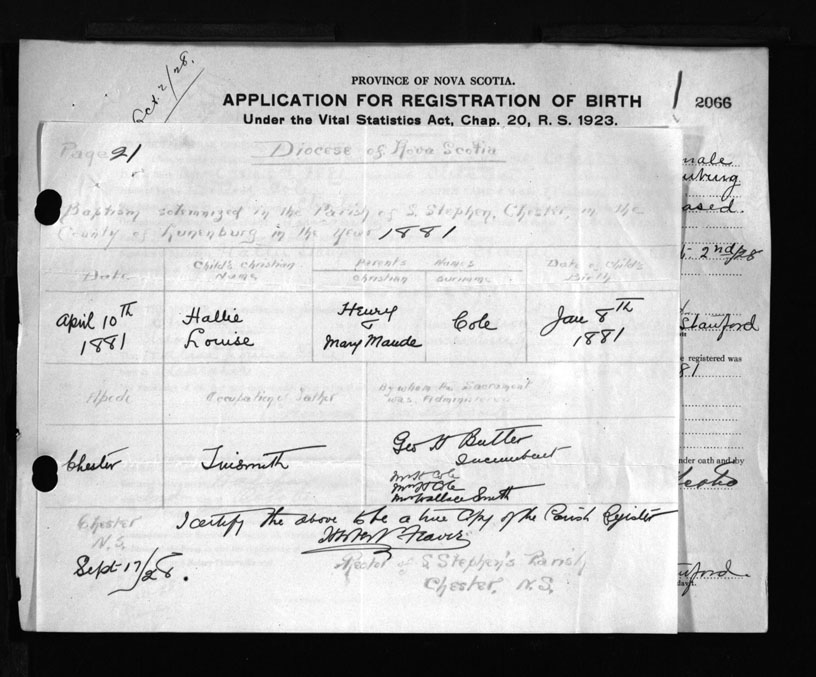 Oct 2/28.
PROVINCE OF NOVA SCOTIA.
APPLICATION FOR REGISTRATION OF BIRTH
Under the Vital Statistics Act, Chap. 20, R. S. 1923.
2066
Page 21
Diocese of Nova Scotia
Baptism solemnized in the Parish of S. Stephen, Chester, in the
County of Lunenburg in the Year 1881
Date
Child's Christian
Name
Parents Names
Christian
Surname
Date of Child's
Birth
April 10th
1881
Hallie
Louise
Henry
&
Mary Maude
Cole
Jan 8th
1881
Abode
Occupation of Father
By whom the Sacrament
was Administered
Chester
Tinsmith
Geo H Butler
Incumbent
Mr H Cole
Mrs H Cole
Mrs Wallace Smith
Chester
N.S.
Sept 17/28.
I certify the above to be a true Copy of the Parish Register
Rector of S Stephen's Parish
Chester, N.S.
male
nburg
ased.
2nd/28
Stanford
e registered was
81
nder oath and by
Scotia